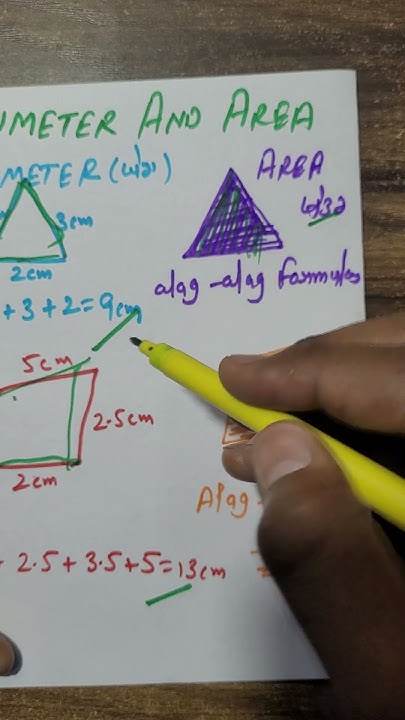 UMETER AND AREA
METER
AREA
3cm
2cm
alag-alag formulas
+ 3 + 2 = 9cm
5cm
2.5cm
2cm
Alag
2.5 + 3.5 + 5 = 13cm